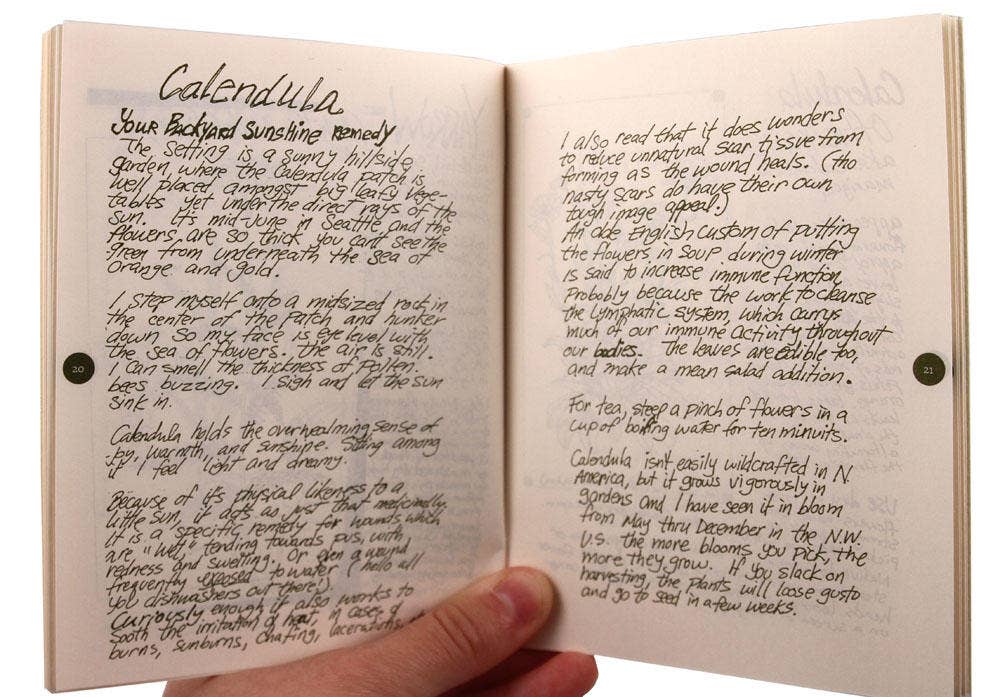 Calendula
Your Backyard Sunshine remedy
The setting is a sunny hillside
garden, where the Calendula patch is
well placed amongst big leafy vege-
tables yet under the direct rays of the
sun. It's mid-June in Seattle, and the
flowers are so thick you can't see the
green from underneath the sea of
orange and gold.
I step myself onto a midsized rock in
the center of the patch and hunker
down so my face is eye level with
the sea of flowers. The air is still.
I can smell the thickness of pollen.
bees buzzing. I sigh and let the sun
sink in.
20
Calendula holds the overwhealming sense of
joy, warmth, and sunshine. Sitting among
it I feel light and dreamy.
Because of it's physical likeness to a
little sun, it acts as just that medicinally.
It is a specific remedy for wounds which
are "wet," tending towards pus, with
redness and swelling. Or even a wound
frequently exposed to water (hello all
you dishwashers out there!)
Curiously enough it also works to
sooth the irritation of heat, in cases of
burns, sunburns, chafing, lacerations,
I also read that it does wonders
to reduce unnatural scar tissue from
forming as the wound heals. (tho
nasty scars do have their own
tough image appeal.)
An olde English custom of putting
the flowers in soup during winter
is said to increase immune function,
Probobly because the work to cleanse
the lymphatic system, which carrys
much of our immune activity throughout
our bodies. The leaves are edible too,
and make a mean salad addition.
21
For tea, steep a pinch of flowers in a
cup of boiling water for ten minuits.
Calendula isn't easily wildcrafted in N.
America, but it grows vigorously in
gardens and I have seen it in bloom
from May thru December in the N.W.
U.S. the more blooms you pick, the
more they grow. If you slack on
harvesting, the plants will loose gusto
and go to seed in a few weeks.